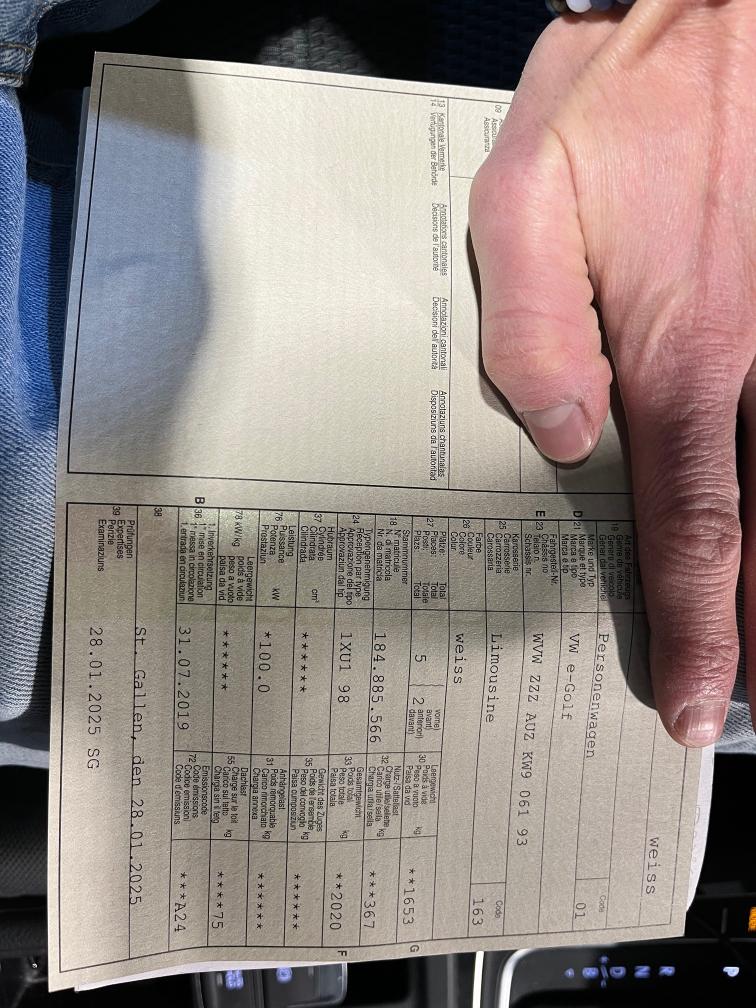 weiss
Personenwagen
Code
01
D 21 Marke und Typ
Marque et type
Marca e tipo
Marca e tip
VW e-Golf
E 23 Fahrgestell-Nr.
Châssis no
Telaio n.
Schassis nr.
WVW ZZZ AUZ KW9 061 93
25 Karosserie
Carrosserie
Carrozzeria
Carossaria
Limousine
Code
163
26 Farbe
Couleur
Colore
Colur
weiss
27 Plätze: Total
Places: Total
Posti: Totale
Plazs: Total
5
2
vorne)
avant)
anteriori)
davant)
G
30 Leergewicht
Poids à vide
Peso a vuoto
Paisa da vid
kg
**1653
18 Stammnummer
N° matricule
N. di matricola
Nr. da matricla
184.885.566
32 Nutz-/Sattellast
Charge utile/sellette
Carico utile/sella
Chargia utila/sella
kg
***367
24 Typengenehmigung
Réception par type
Approvazione del tipo
Approvaziun dal tip
1XU1 98
33 Gesamtgewicht
Poids total
Peso totale
Paisa totala
kg
**2020
F
37 Hubraum
Cylindrée
Cilindrata
Cilindrada
cm³
******
35 Gewicht des Zuges
Poids de l'ensemble
Peso del convoglio
Paisa cumposiziun
kg
******
76 Leistung
Puissance
Potenza
Prestaziun
kW
*100.0
31 Anhängelast
Poids remorquable
Carico rimorchiato
Chargia annexa
kg
******
78 kW/kg
Leergewicht
poids à vide
peso a vuoto
paisa da vid
******
55 Dachlast
Charge sur le toit
Carico sul tetto
Chargia sin il tetg
kg
****75
B 36 1. Inverkehrsetzung
1re mise en circulation
1a messa in circolazione
1. entrada en circulaziun
31.07.2019
72 Emissionscode
Code émissions
Codice emissioni
Code d'emissiuns
***A24
38
St. Gallen, den 28.01.2025
39 Prüfungen
Expertises
Perizie
Examinaziuns
28.01.2025 SG
09
Assicuranza
13 Kantonale Vermerke
14 Verfügungen der Behörde
Annotations cantonales
Décisions de l'autorité
Annotazioni cantonali
Decisioni dell'autorità
Annotaziuns chantunalas
Disposiziuns da l'autoritad
P
R
N
D
B